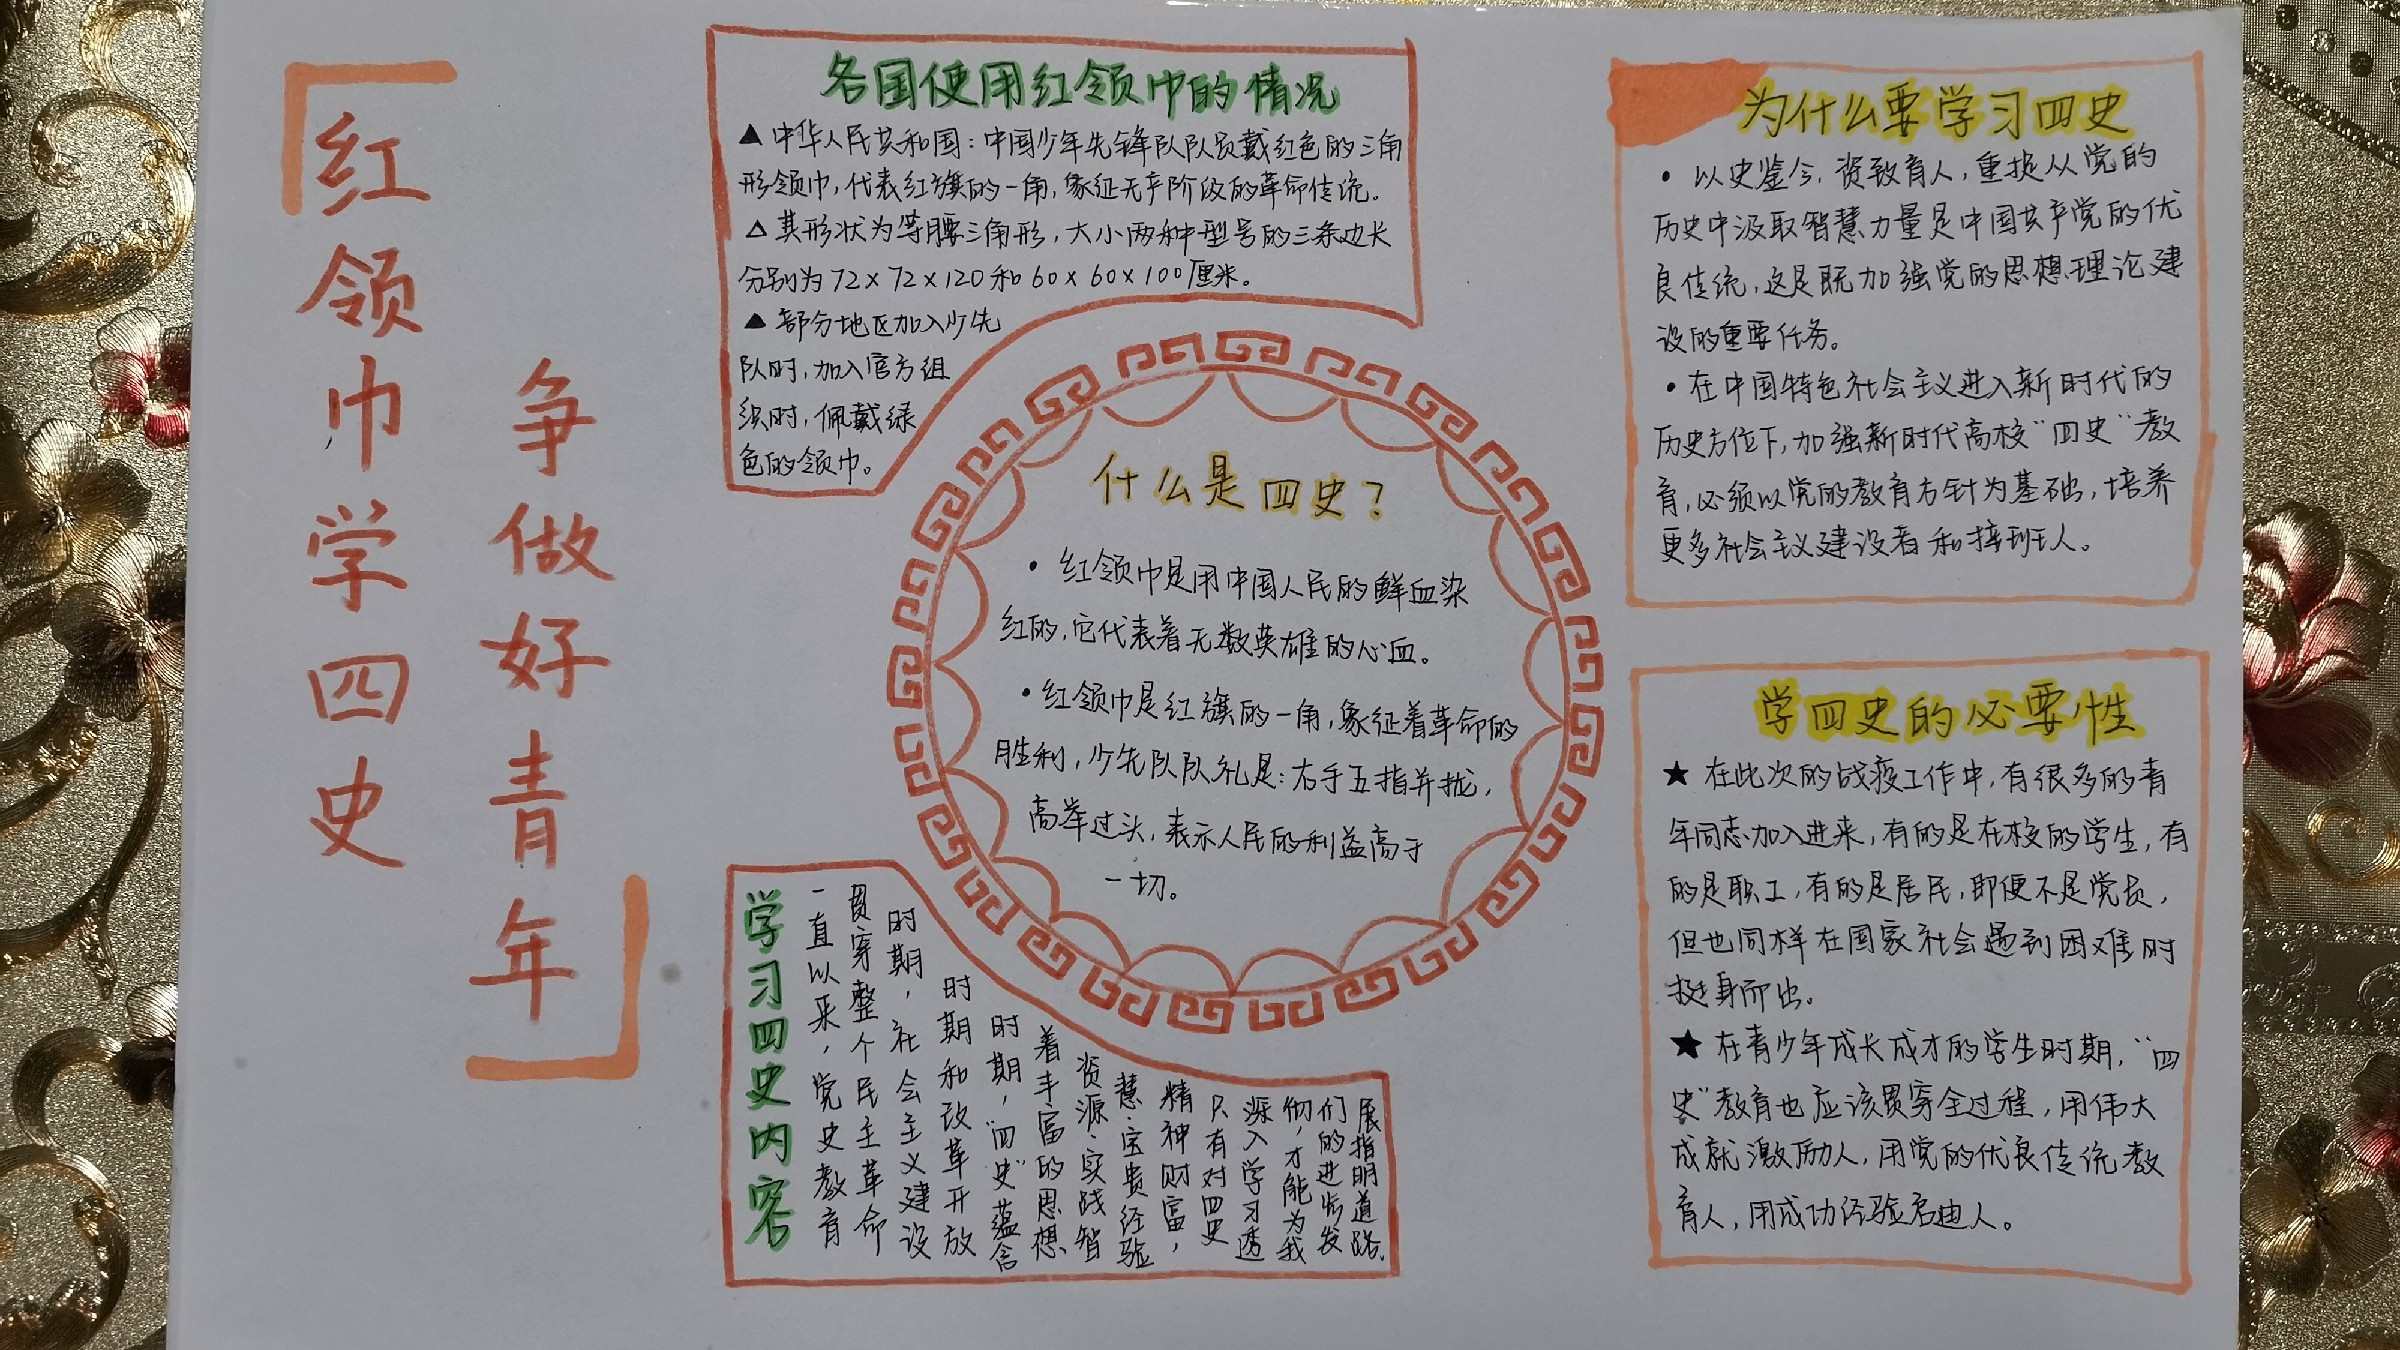 红领巾学四史
争做好青年
各国使用红领巾的情况
▲中华人民共和国：中国少年先锋队队员戴红色的三角
形领巾，代表红旗的一角，象征无产阶级的革命传统。
△其形状为等腰三角形，大小两种型号的三条边长
分别为72×72×120和60×60×100厘米。
▲部分地区加入少先
队时，加入官方组
织时，佩戴绿
色的领巾。
什么是四史？
·红领巾是用中国人民的鲜血染
红的，它代表着无数英雄的心血。
·红领巾是红旗的一角，象征着革命的
胜利，少先队队礼是：右手五指并拢，
高举过头，表示人民的利益高于
一切。
学习四史内容
一直以来，党史教育
贯穿整个民主革命
时期，社会主义建设
时期和改革开放
时期，“四史”蕴含
着丰富的思想
资源、实战智
慧、宝贵经验
精神财富，
只有对四史
深入学习透
彻，才能为我
们的进步发
展指明道路.
为什么要学习四史
·以史鉴今、资致育人，重捉从党的
历史中汲取智慧力量是中国共产党的优
良传统，这是既加强党的思想理论建
设的重要任务。
·在中国特色社会主义进入新时代的
历史方位下，加强新时代高校“四史”教
育，必须以党的教育方针为基础，培养
更多社会主义建设者和接班人。
学四史的必要性
★在此次的战疫工作中，有很多的青
年同志加入进来，有的是在校的学生，有
的是职工，有的是居民，即便不是党员，
但也同样在国家社会遇到困难时
挺身而出。
★在青少年成长成才的学生时期，“四
史”教育也应该贯穿全过程，用伟大
成就激励人，用党的优良传统教
育人，用成功经验启迪人。